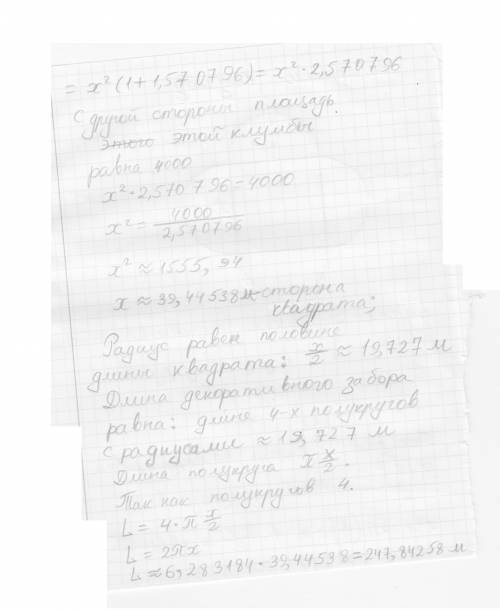 = x² (1 + 1,570796) = x² · 2,570796
С другой стороны площадь
этого этой клумбы
равна 4000
x² · 2,570796 = 4000
x² = 4000 / 2,570796
x² ≈ 1555,94
x ≈ 39,44538 м - сторона
квадрата;
Радиус равен половине
длины квадрата: x/2 ≈ 19,727 м
Длина декоративного забора
равна: длине 4-х полукругов
с радиусами ≈ 19,727 м
Длина полукруга π x/2.
Так как полукругов 4.
L = 4 · π x/2
L = 2πx
L ≈ 6,283184 · 39,44538 = 247,84258 м